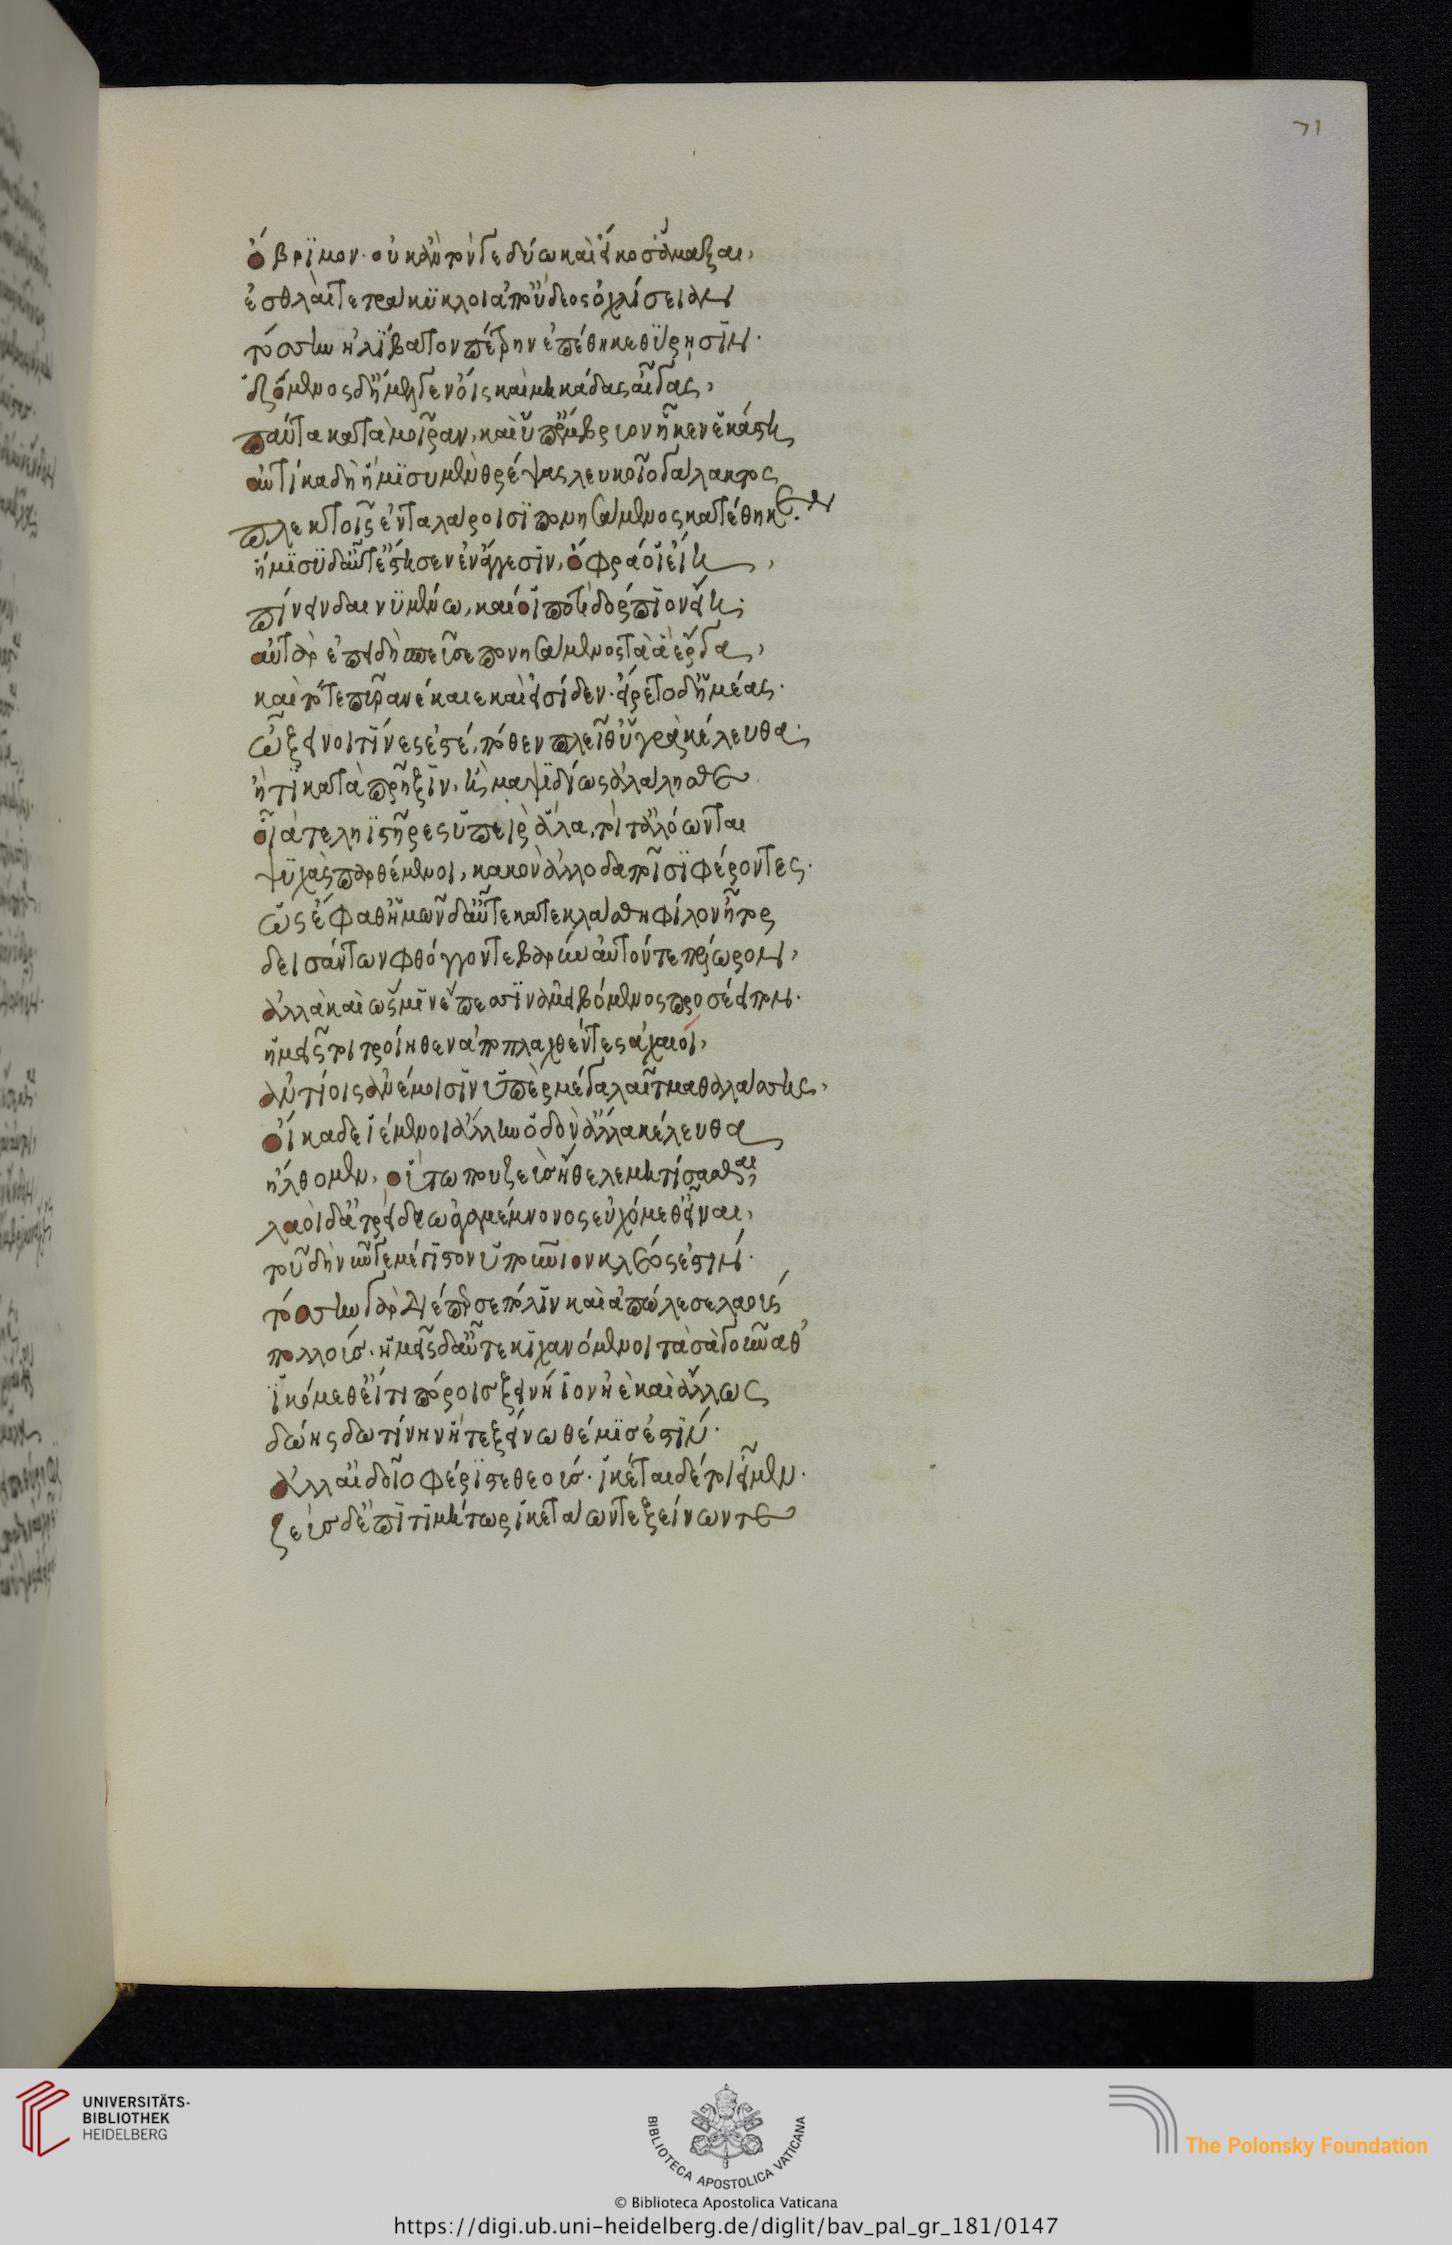 71
ὄβριμον· οὐκ ἂν τόν γε δύω καὶ εἴκοσ' ἅμαξαι,
ἐσθλαὶ τετράκυκλοι ἀπ' οὔδεος ὀχλίσειαν
τόσσην ἠλίβατον πέτρην ἐπέθηκε θύρησιν·
ἑζόμενος δ' ἤμελγεν ὄις καὶ μηκάδας αἶγας,
πάντα κατὰ μοῖραν, καὶ ὑπ' ἔμβρυον ἧκεν ἑκάστη
αὐτίκα δὴ ἥμισυ μὲν θρέψας λευκοῖο γάλακτος
πλεκτοῖς ἐν ταλάροισι πονησάμενος κατέθηκεν.
ἥμισυ δ' αὖτ' ἔστησεν ἐν ἄγγεσιν, ὄφρά οἱ εἴη,
πίνειν δαινυμένω, καί οἱ ποτὶ δόρπιον εἴη·
αὐτὰρ ἐπειδὴ σπεῖσε πονησάμενος τὰ ἃ ἔργα,
καὶ τότε πῦρ ἀνέκαιε καὶ εἴσιδεν· εἴρετο δ' ἡμέας·
ὦ ξεῖνοι τίνες ἐστέ, πόθεν πλεῖθ' ὑγρὰ κέλευθα·
ἤ τι κατὰ πρῆξιν, ἢ μαψιδίως ἀλάλησθε
οἷά τε ληϊστῆρες ὑπεὶρ ἅλα, τοί τ' ἀλόωνται
ψυχὰς παρθέμενοι, κακὸν ἀλλοδαποῖσι φέροντες·
ὣς ἔφαθ' ἡμῶν δ' αὖτε κατεκλάσθη φίλον ἦτορ
δεισάντων φθόγγόν τε βαρὺν αὐτόν τε πέλωρον,
ἀλλὰ καὶ ὥς μιν ἔπεσσιν ἀμειβόμενος προσέειπον·
ἡμεῖς τοι τροίηθεν ἀποπλαχθέντες ἀχαιοί,
παντίοις ἀνέμοισιν ὑπὲρ μέγα λαῖτμα θαλάσσης,
οἴκαδε ἱέμενοι ἄλλην ὁδὸν ἄλλα κέλευθα
ἤλθομεν, οὕτω που ζεὺς ἤθελε μητίσασθαι,
λαοὶ δ' ἀτρείδεω ἀγαμέμνονος εὐχόμεθ' εἶναι,
τοῦ δὴν νῦν γε μέγιστον ὑπουράνιον κλέος ἐστίν·
τόσσην γὰρ διέπερσε πόλιν καὶ ἀπώλεσε λαοὺς
πολλούς· ἡμεῖς δ' αὖτε κιχανόμενοι τὰ σὰ γοῦναθ'
ἱκόμεθ' εἴ τι πόροις ξεινήιον ἠὲ καὶ ἄλλως
δώης δωτίνην ἥτε ξείνω θέμις ἐστίν·
ἀλλ' αἰδοῖο φέριστε θεούς· ἱκέται δέ τοι εἰμέν·
ζεὺς δ' ἐπιτιμήτωρ ἱκετάων τε ξείνων τε
UNIVERSITÄTS-
BIBLIOTHEK
HEIDELBERG
BIBLIOTECA APOSTOLICA VATICANA
© Biblioteca Apostolica Vaticana
The Polonsky Foundation
https://digi.ub.uni-heidelberg.de/diglit/bav_pal_gr_181/0147